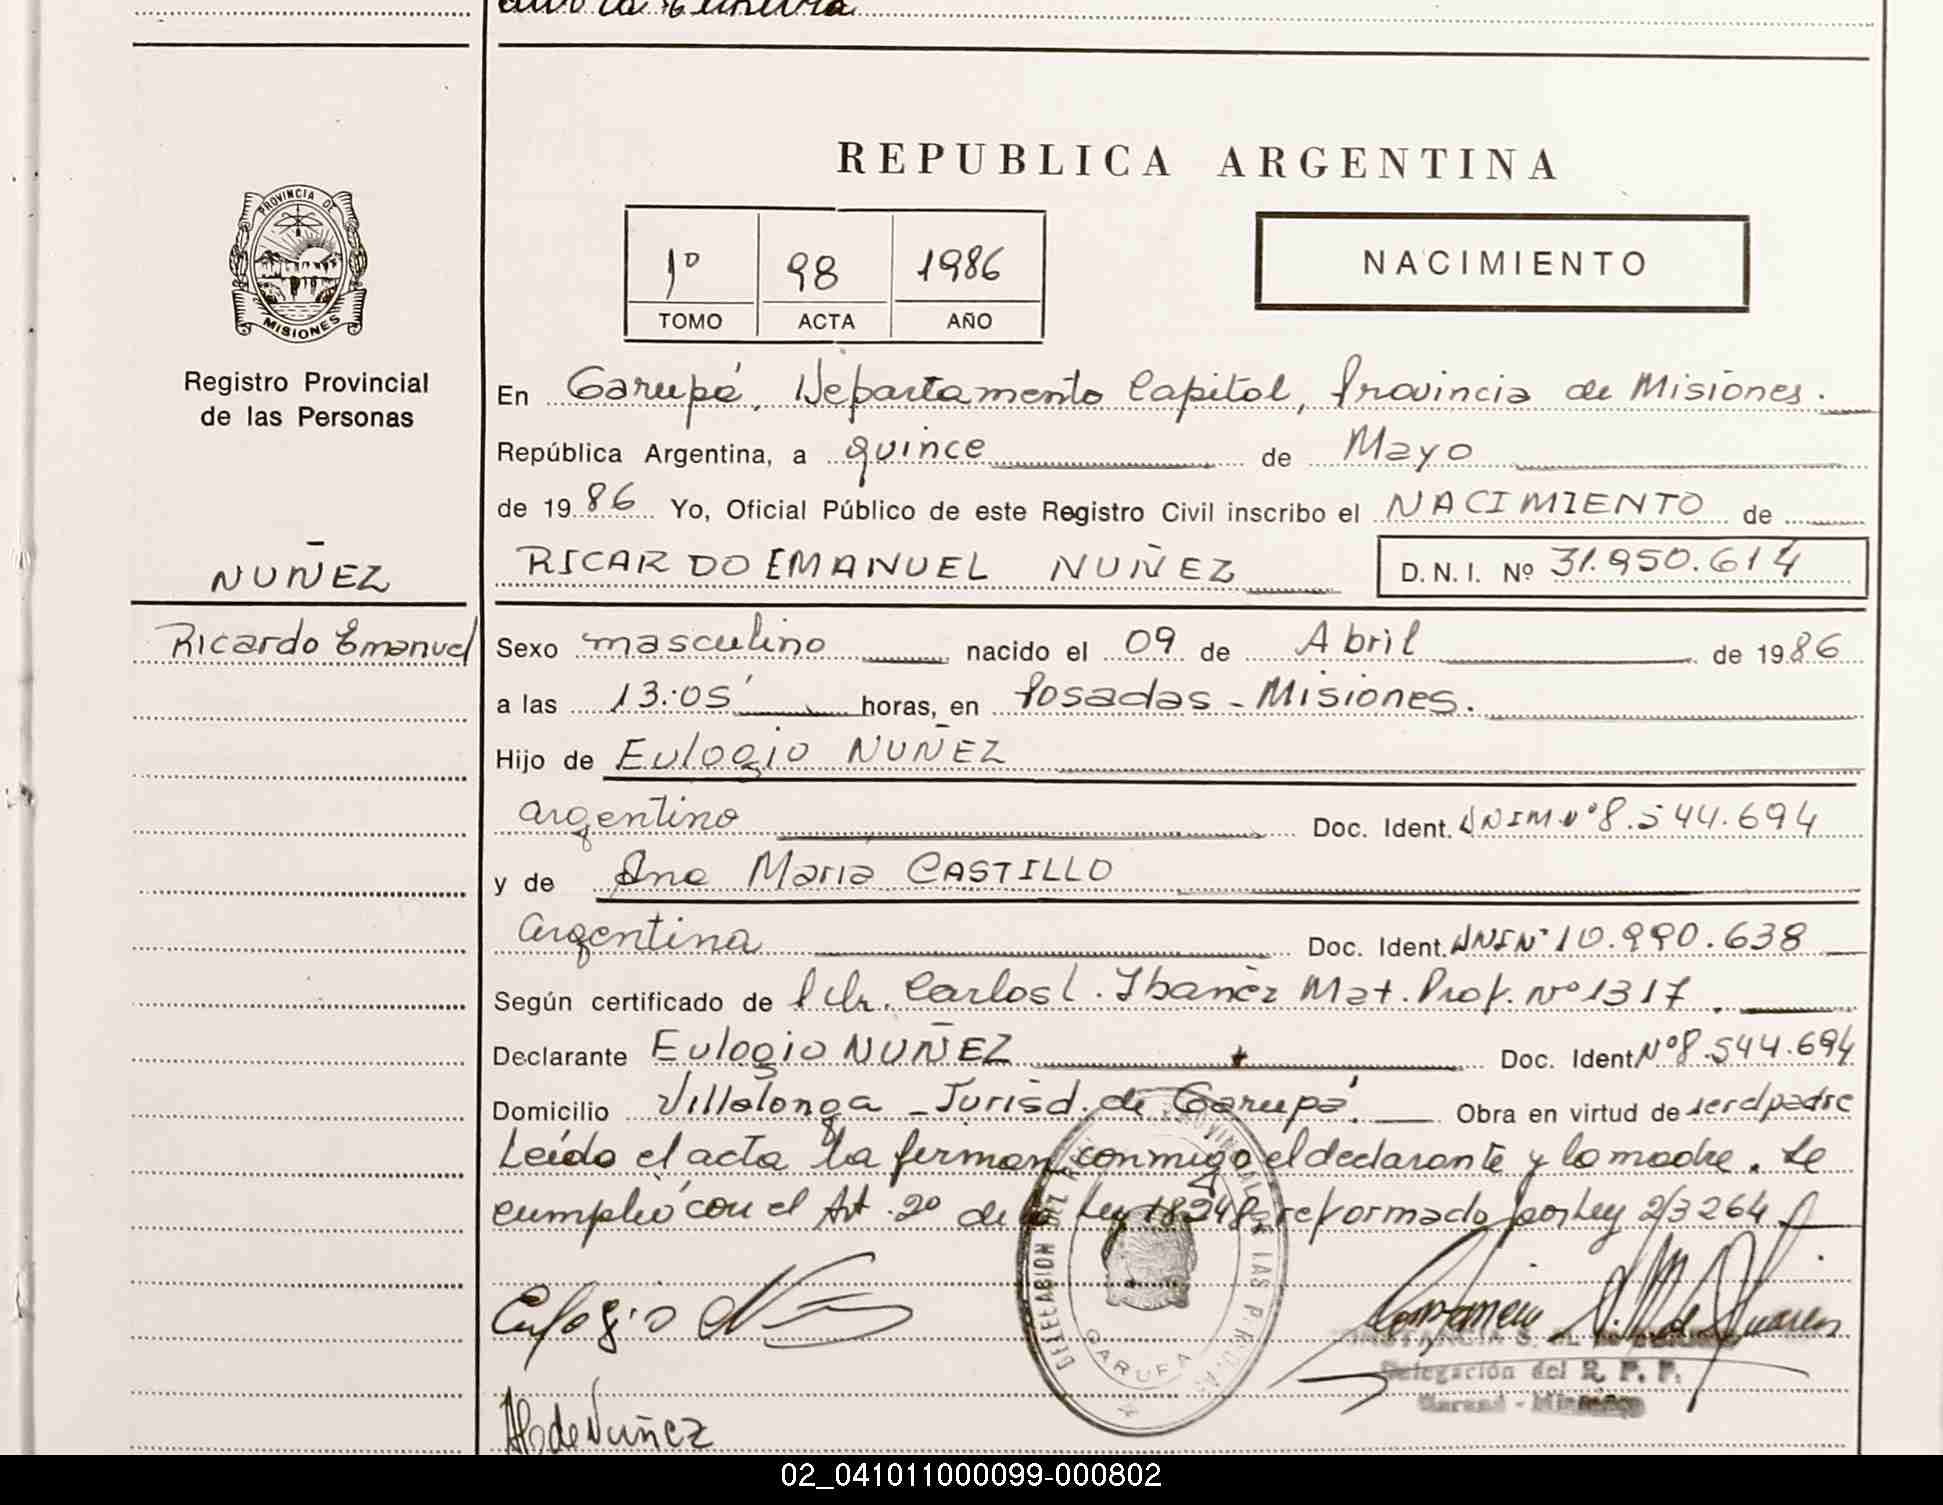 REPUBLICA ARGENTINA
PROVINCIA DE
MISIONES
Registro Provincial
de las Personas
1º 98 1986
TOMO ACTA AÑO
NACIMIENTO
En Garupá, Departamento Capital, Provincia de Misiones.
República Argentina, a quince de Mayo
de 1986 Yo, Oficial Público de este Registro Civil inscribo el NACIMIENTO de
NUÑEZ
RICARDO EMANUEL NUÑEZ D.N.I. Nº 31.950.614
Ricardo Emanuel
Sexo masculino nacido el 09 de Abril de 1986
a las 13:05' horas, en Posadas - Misiones.
Hijo de Eulogio NUÑEZ
argentino Doc. Ident. DNIM Nº 8.544.694
y de Ana Maria CASTILLO
argentina Doc. Ident. DNI Nº 10.990.638
Según certificado de Carlos Ibañez Mat. Prof. Nº 1317
Declarante Eulogio NUÑEZ Doc. Ident. Nº 8.544.694
Domicilio Villalonga - Jurisd. de Garupá. Obra en virtud de ser el padre
Leída el acta la firman conmigo el declarante y la madre. Se
cumplió con el Art. 2º de la Ley 18248, reformado por Ley 23264
DELEGACION DEL REG. PROVINCIAL DE LAS PERSONAS
GARUPA
Eulogio
Delegación del R. P. P.
Garupá - Misiones
de Nuñez
02_041011000099-000802